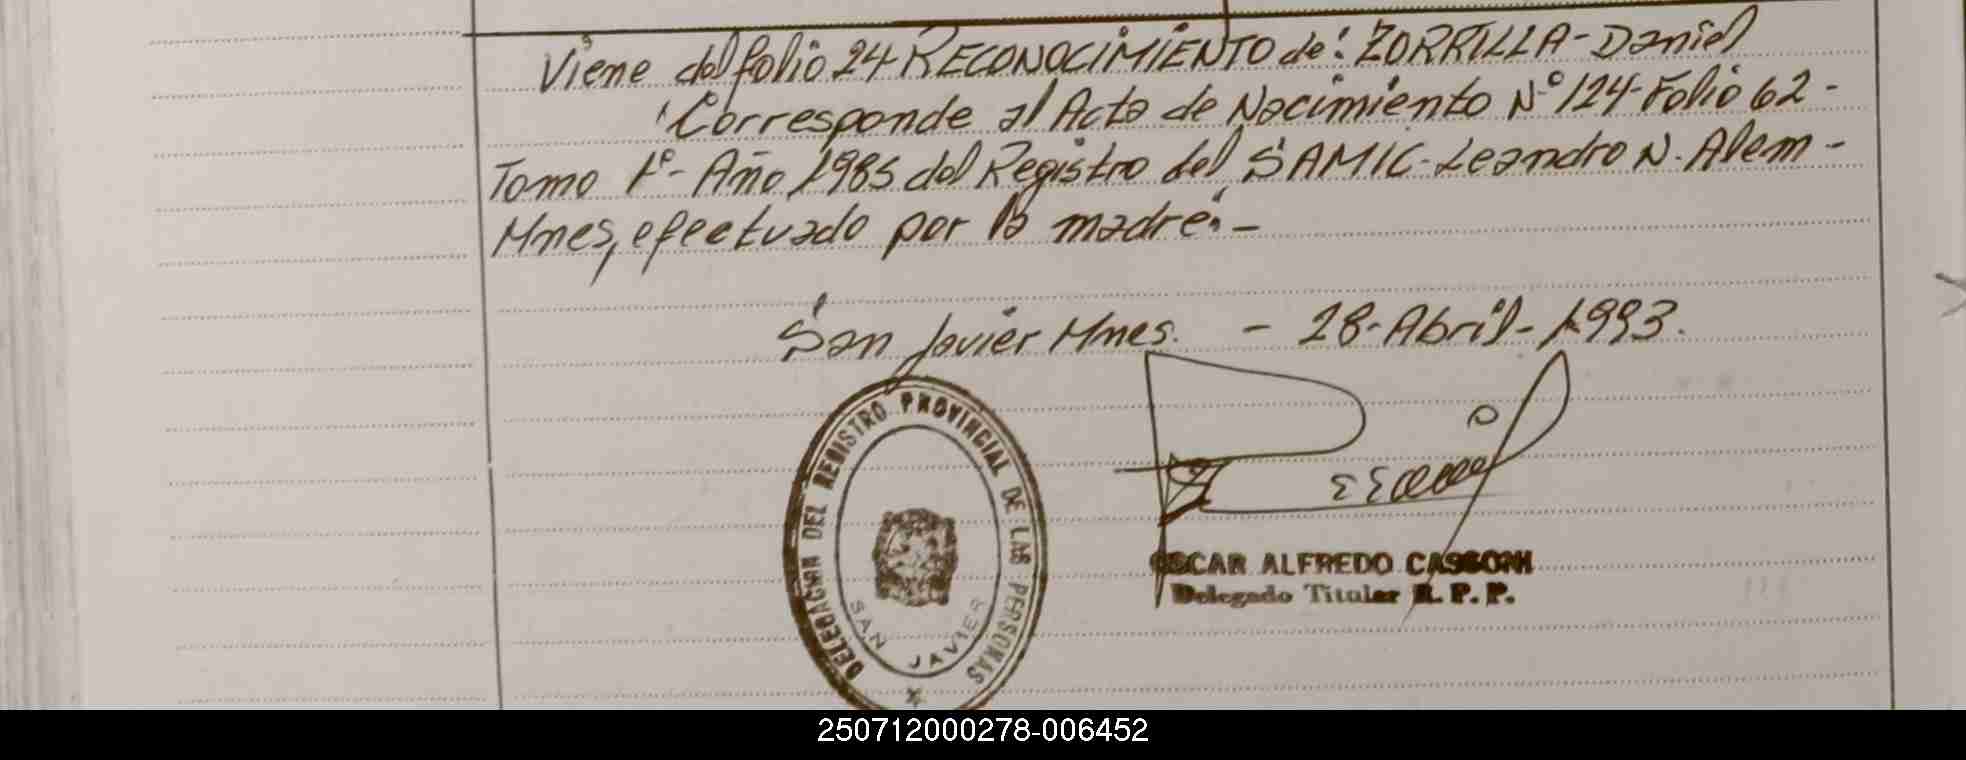 Viene del folio 24 RECONOCIMIENTO de: ZORRILLA - Daniel
Corresponde al Acta de Nacimiento Nº 124 - Folio 62 -
Tomo 1º - Año 1985 del Registro del SAMIC - Leandro N. Alem -
Mnes, efectuado por la madre. -
San Javier Mnes. - 28 - Abril - 1993.
DELEGACION DEL REGISTRO PROVINCIAL DE LAS PERSONAS
SAN JAVIER
OSCAR ALFREDO
Delegado Titular R. P. P.
250712000278-006452